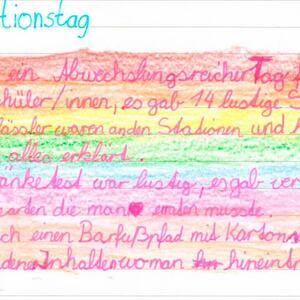 tionstag
ein Abwechslungsreicher Tag f
chüler/innen, es gab 14 lustige S
lässler waren an den Stationen und h
alles erklärt.
änketest war lustig, es gab ver
earten die man erraten musste.
ch einen Barfußpfad mit Karton
dener Inhalterwoman hineintr